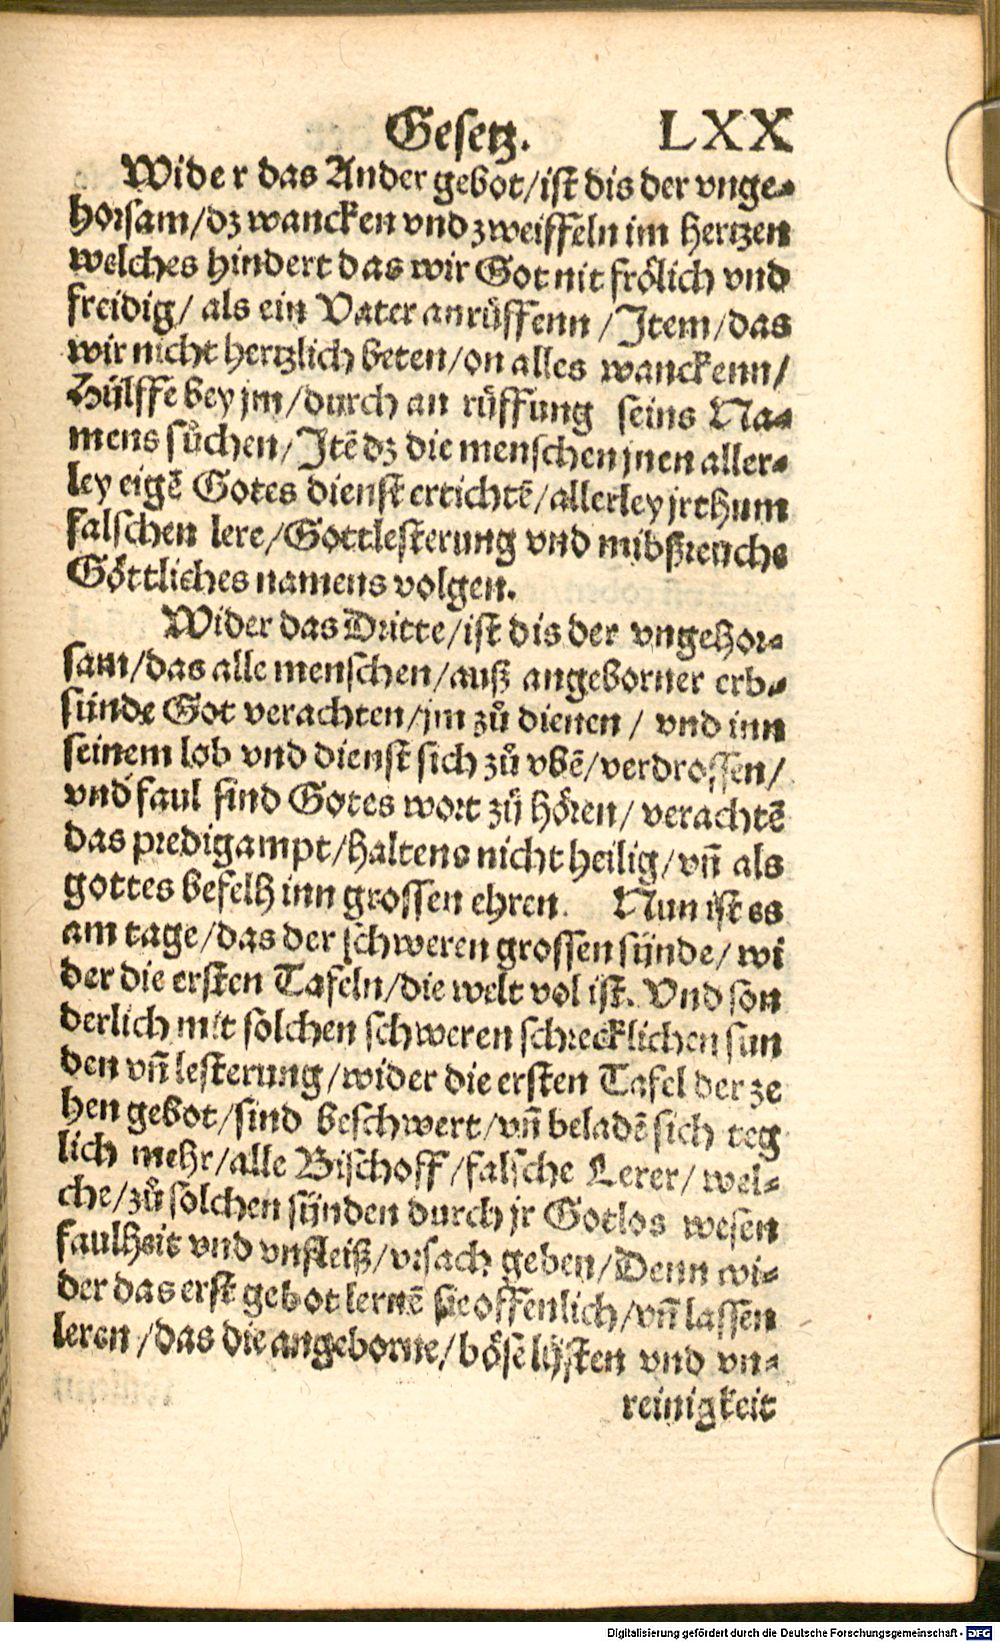 Gesetz. LXX
Wider das Ander gebot/ist dis der vnge-
horsam/dz wancken vnd zweiffeln im hertzen
welches hindert das wir Got nit frölich vnd
freidig/ als ein Vater anrüffenn /Item/das
wir nicht hertzlich beten/on alles wanckenn/
Hülffe bey jm/durch an rüffung seins Na-
mens sůchen/Itē dz die menschen jnen aller-
ley eigē Gotes dienst ertichtē/allerley jrthum
falschen lere/Gottlesterung vnd mibßreuche
Göttliches namens volgen.
Wider das Dritte/ist dis der vngehor-
sam/das alle menschen/auß angeborner erb-
sünde Got verachten/jm zů dienen / vnd inn
seinem lob vnd dienst sich zů vbē/verdrossen/
vnd faul sind Gotes wort zů hören/ verachtē
das predigampt/haltens nicht heilig/vñ als
gottes befelh inn grossen ehren. Nun ist es
am tage/das der schweren grossen sünde/ wi
der die ersten Tafeln/die welt vol ist. Vnd son
derlich mit solchen schweren schrecklichen sun
den vñ lesterung/wider die ersten Tafel der ze
hen gebot/sind beschwert/vñ beladē sich teg
lich mehr/alle Bischoff/falsche Lerer/ wel-
che/zů solchen sünden durch jr Gotlos wesen
faulheit vnd vnfleiß/vrsach geben/Denn wi-
der das erst gebot lernē sie offenlich/vñ lassen
leren/das die angeborne/böse lüsten vnd vn-
reinigkeit
Digitalisierung gefördert durch die Deutsche Forschungsgemeinschaft - DFG